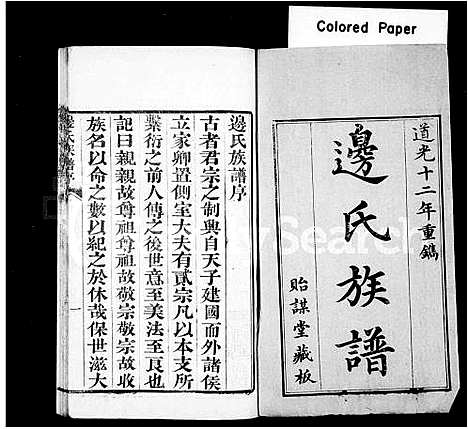 Colored Paper
道光十二年重鐫
邊氏族譜
貽謀堂藏板
邊氏族譜序
古者君宗之制興自天子建國而外諸侯
立家卿置側室大夫有貳宗凡以本支所
繫衍之前人傳之後世意至美法至良也
記曰親親故尊祖尊祖故敬宗敬宗故收
族名以命之數以紀之於休哉保世滋大
一